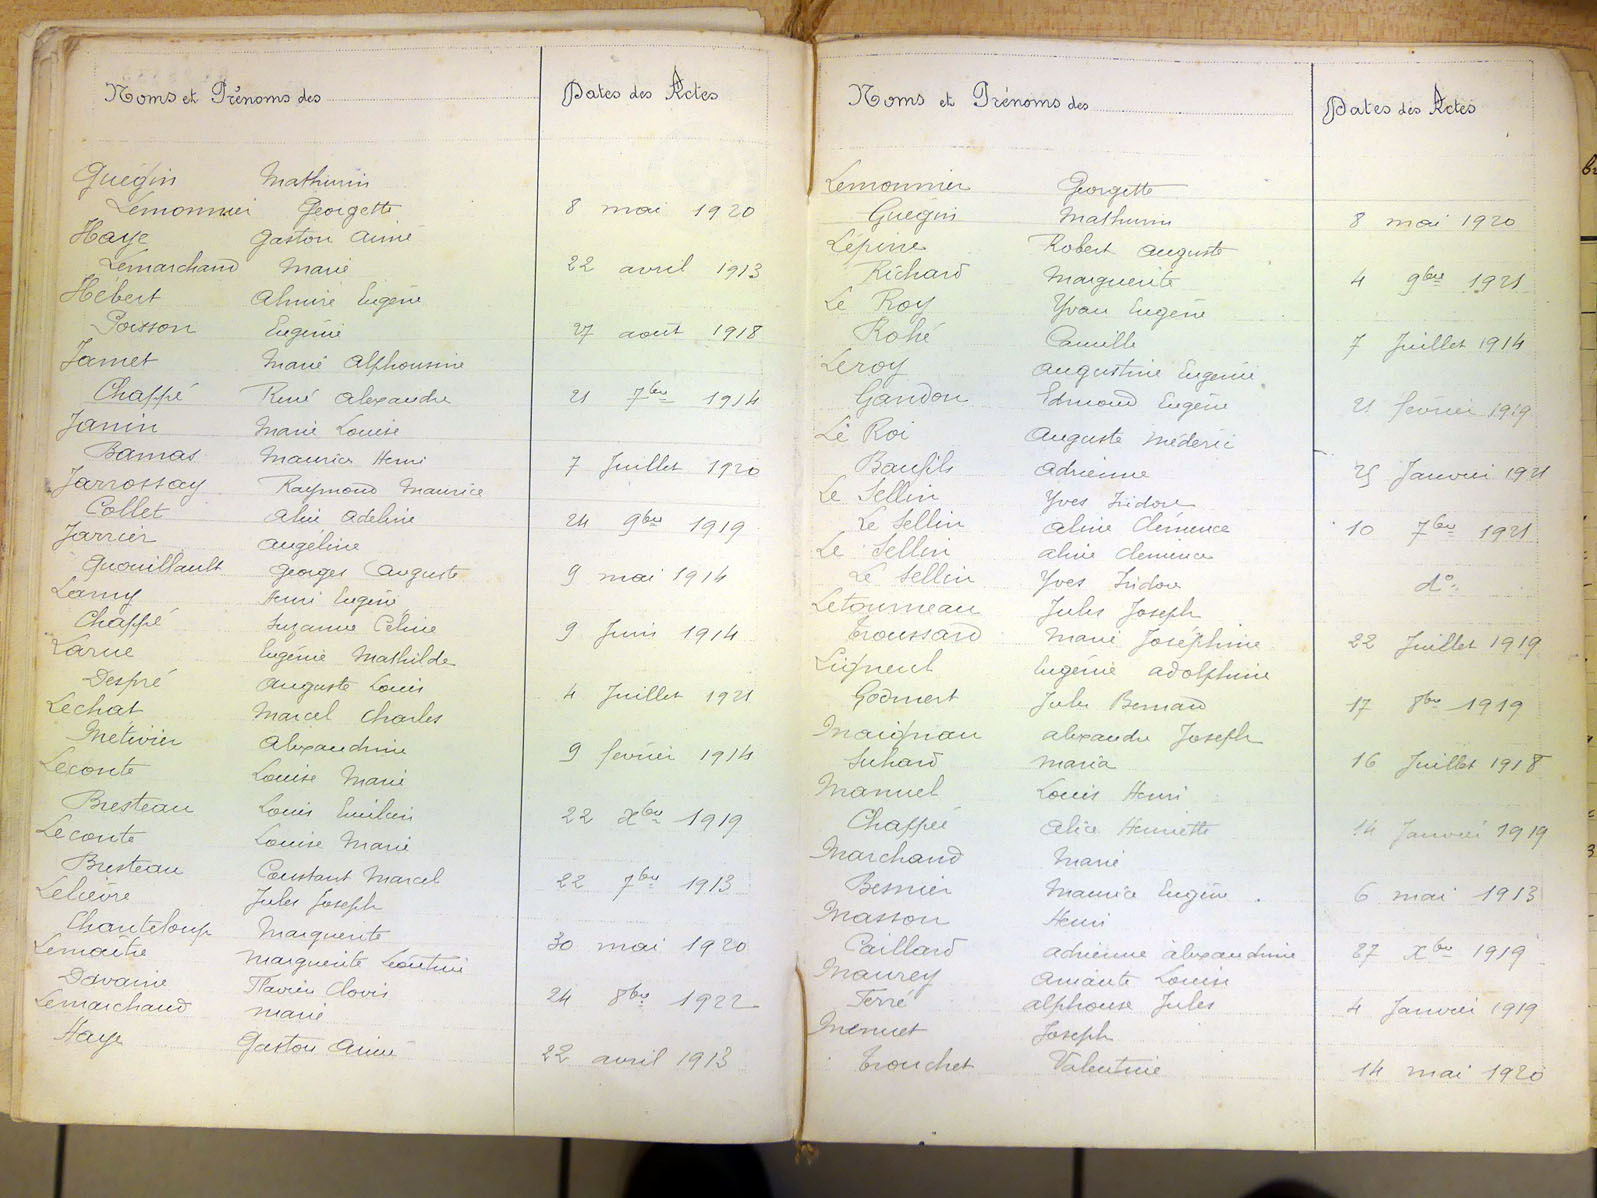 Noms et Prénoms des
Dates des Actes
Guégin Mathurin
Lemonnier Georgette 8 mai 1920
Haye Gaston Aimé
Lemarchand Marie 22 avril 1913
Hébert Almire Eugène
Poisson Eugénie 27 août 1918
Jamet Marie Alphonsine
Chappé René Alexandre 21 7bre 1914
Janin Marie Louise
Bamas Maurice Henri 7 Juillet 1920
Jarrossay Raymond Maurice
Collet Aline Adeline 24 9bre 1919
Jarrier Angéline
Grouillault Georges Auguste 9 mai 1914
Lamy Henri Eugène
Chappé Suzanne Céline 9 Juin 1914
Larue Eugénie Mathilde
Despré Auguste Louis 4 Juillet 1921
Lechat Marcel Charles
Métivier Alexandrine 9 février 1914
Leconte Louise Marie
Bresteau Louis Emilien 22 Xbre 1919
Leconte Louise Marie
Bresteau Constant Marcel 22 7bre 1913
Lelièvre Jules Joseph
Chanteloup Marguerite 30 mai 1920
Lemaître Marguerite Léontine
Davaine Flavien Clovis 24 8bre 1922
Lemarchand Marie
Haye Gaston Aimé 22 avril 1913
Noms et Prénoms des
Dates des Actes
Lemonnier Georgette
Guégin Mathurin 8 mai 1920
Lépine Robert Auguste
Richard Marguerite 4 9bre 1921
Le Roy Yvan Eugène
Rohé Camille 7 Juillet 1914
Leroy Augustine Eugénie
Gandon Edmond Eugène 21 février 1919
Le Roi Auguste Médéric
Baufils Adrienne 25 Janvier 1921
Le Sellin Yves Isidore
Le Sellin Aline Clémence 10 7bre 1921
Le Sellin Aline Clémence
Le Sellin Yves Isidore do
Letourneau Jules Joseph
Troussard Marie Joséphine 22 Juillet 1919
Ligneul Eugénie Adolphine
Godmert Jules Bernard 17 8bre 1919
Maignan Alexandre Joseph
Suhard Maria 16 Juillet 1918
Manuel Louis Henri
Chappée Alice Henriette 14 Janvier 1919
Marchand Marie
Besnier Maurice Eugène 6 mai 1913
Masson Henri
Paillard Adrienne Alexandrine 27 Xbre 1919
Maurey Amante Louise
Ferré Alphonse Jules 4 Janvier 1919
Menuet Joseph
Trouchet Valentine 14 mai 1920